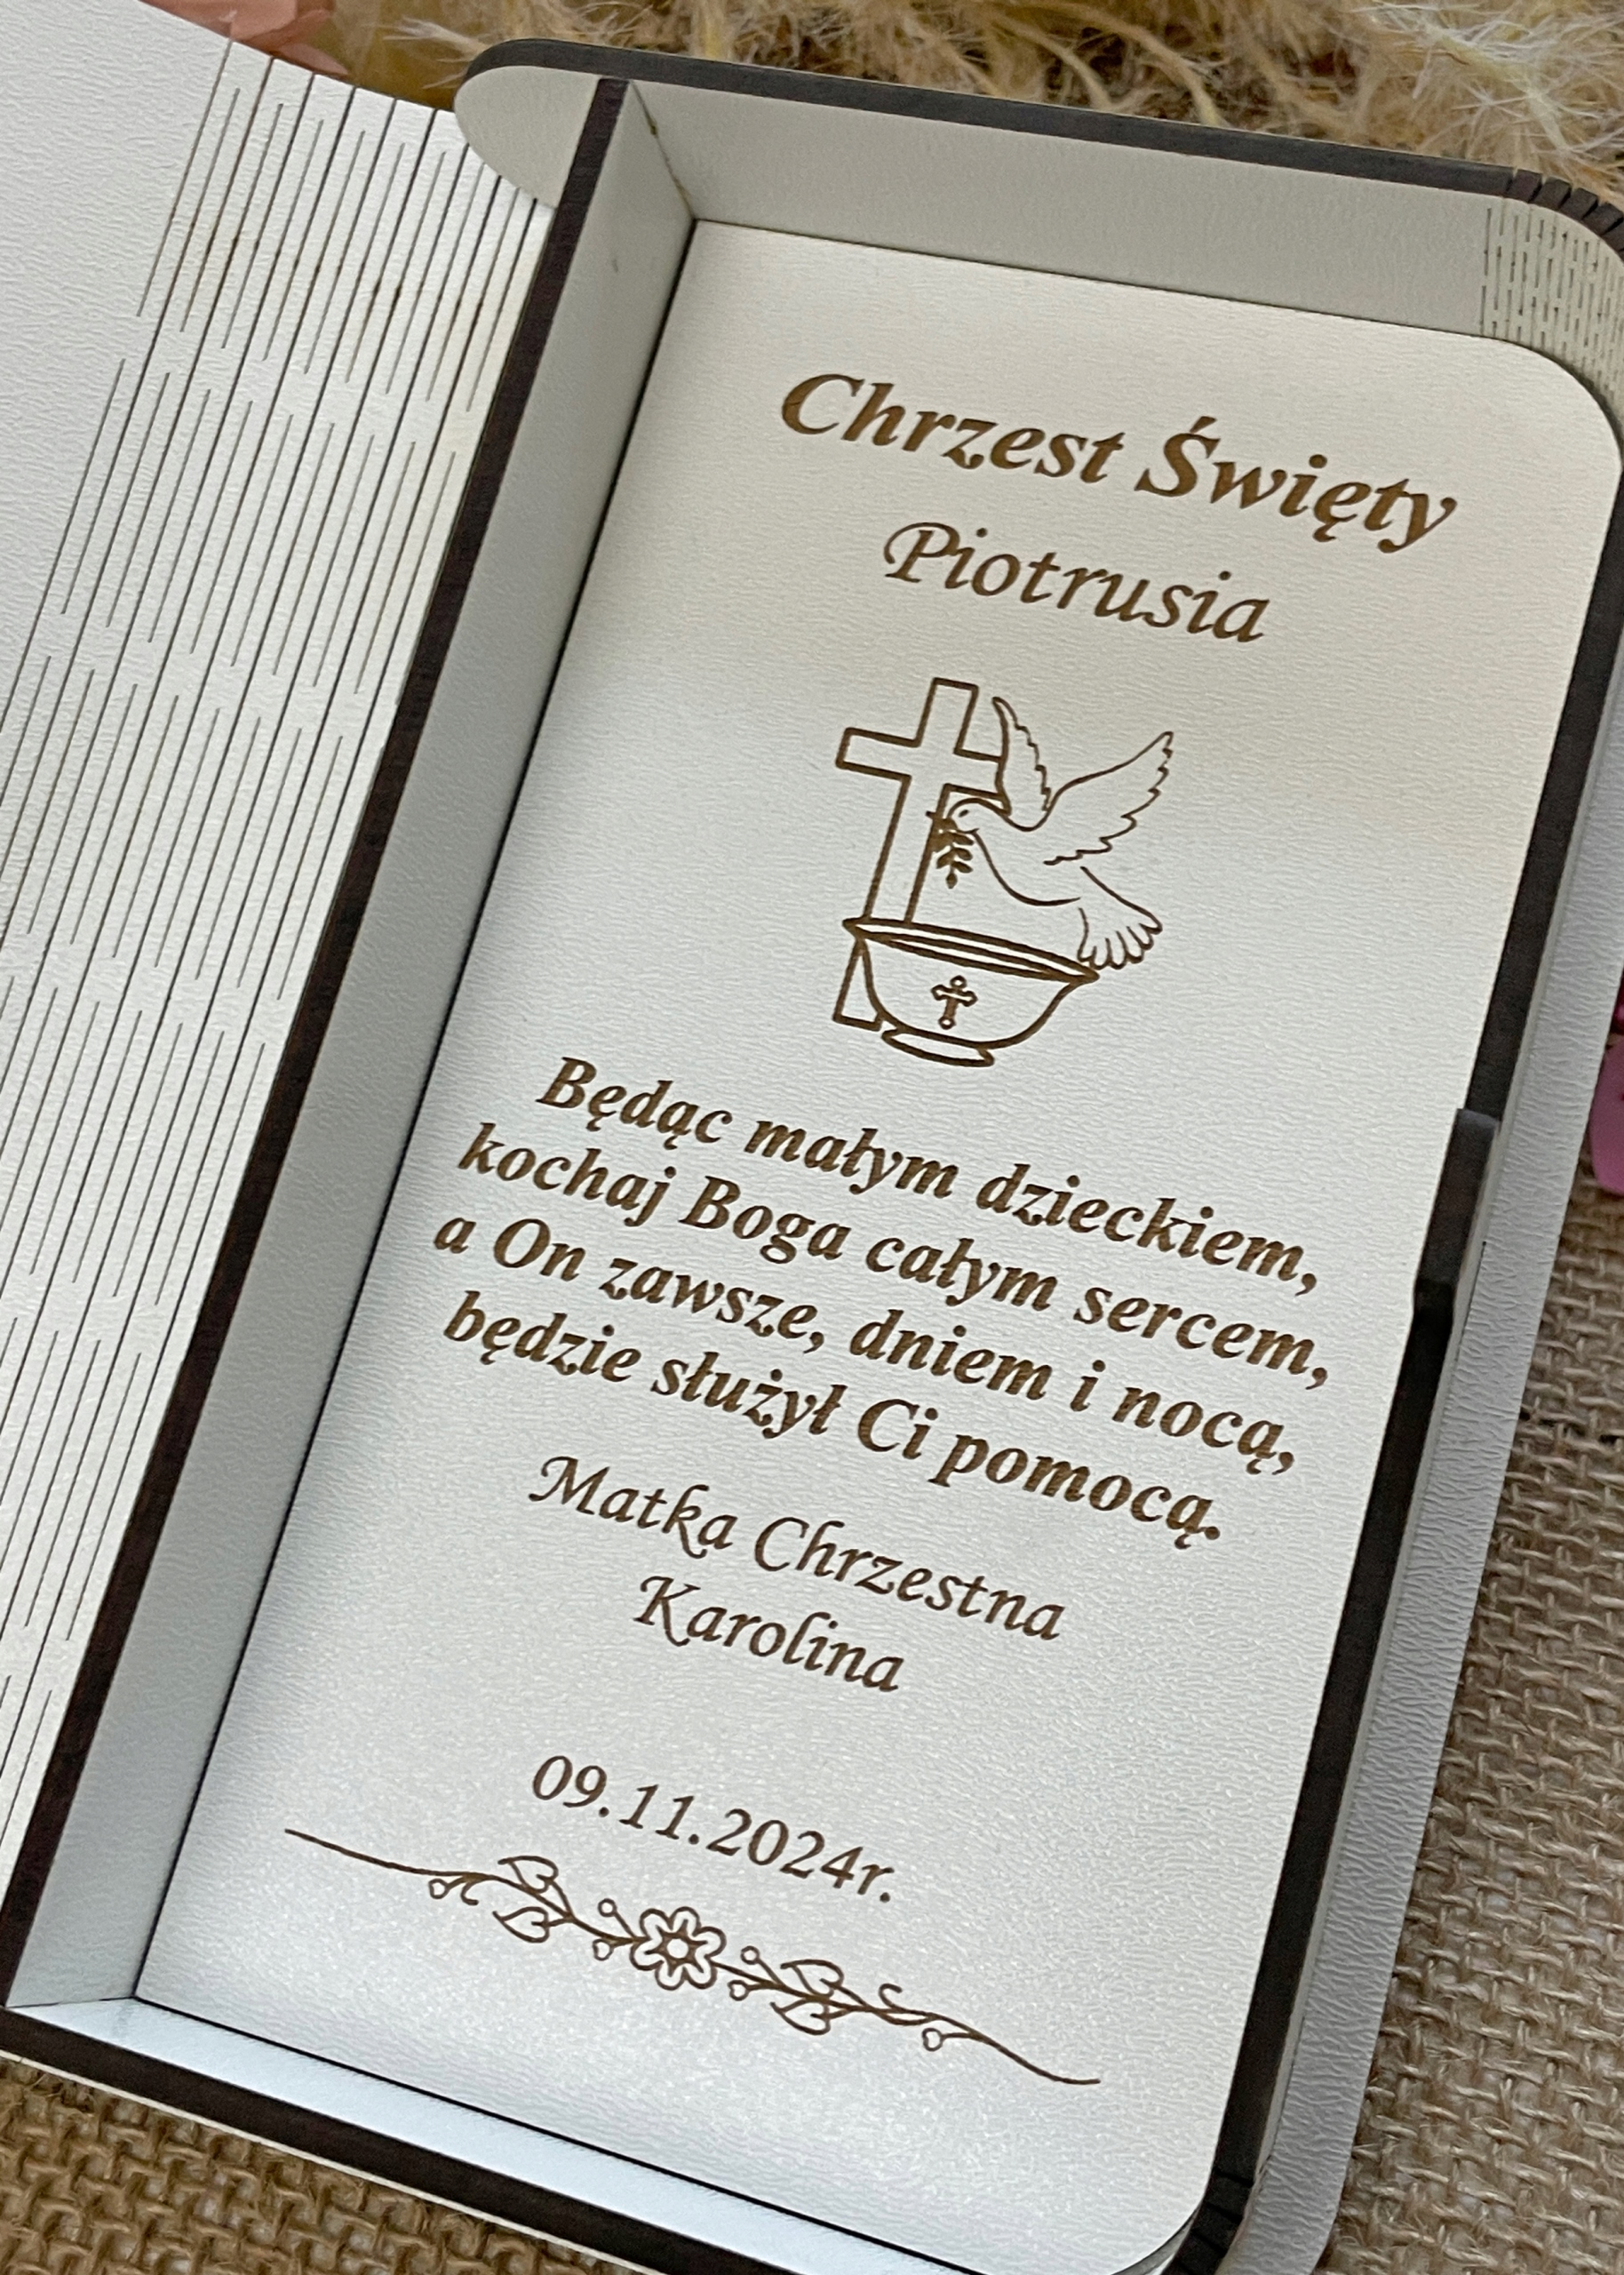 Chrzest Święty
Piotrusia
Będąc małym dzieckiem,
kochaj Boga całym sercem,
a On zawsze, dniem i nocą,
będzie służył Ci pomocą.
Matka Chrzestna
Karolina
09.11.2024r.